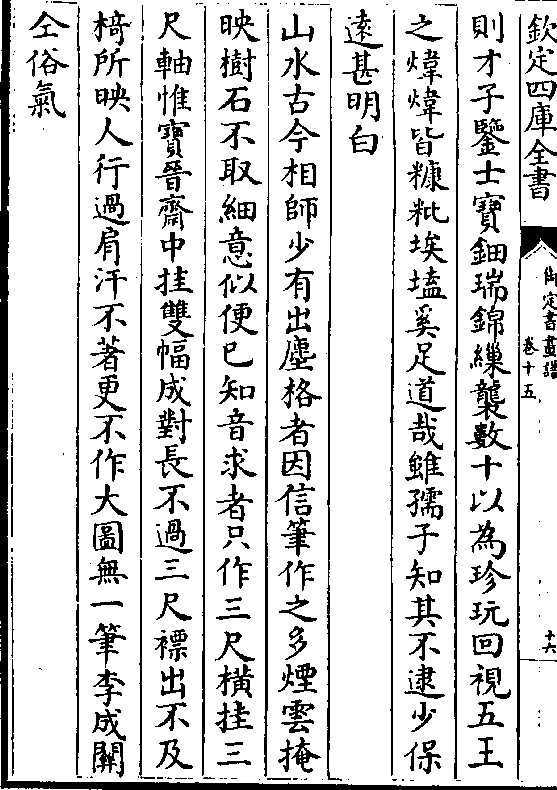 欽定四庫全書
御定書畫譜
卷十五
十六
則才子鑒士寶鈿瑞錦繅襲數十以為珍玩回視五王
之煒煒皆糠粃埃壒奚足道哉雖孺子知其不逮少保
遠甚明白
山水古今相師少有出塵格者因信筆作之多煙雲掩
映樹石不取細意似便已知音求者只作三尺橫挂三
尺軸惟寶晉齋中挂雙幅成對長不過三尺褾出不及
椅所映人行過肩汗不著更不作大圖無一筆李成關
仝俗氣